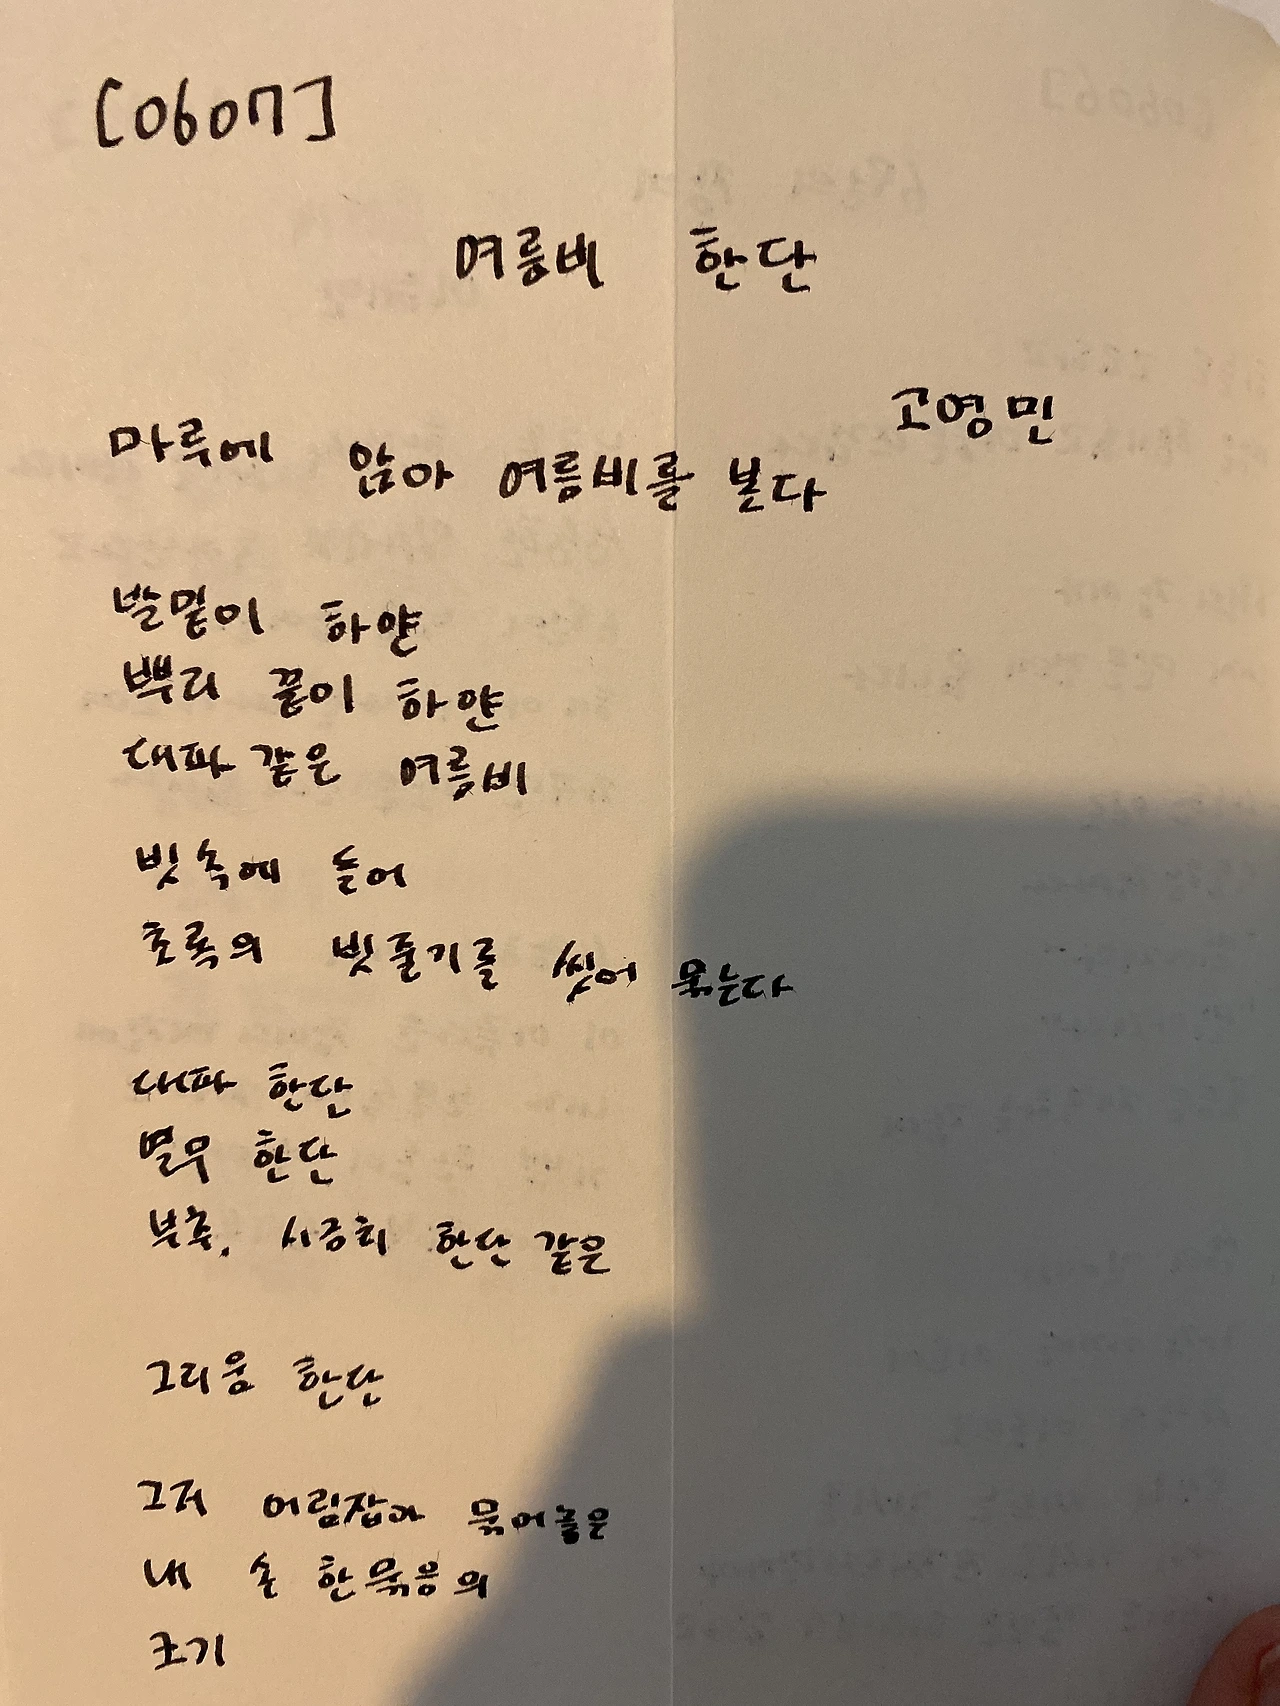 [0607]
여름비 한단
고영민
마루에 앉아 여름비를 본다
발밑이 하얀
뿌리 끝이 하얀
대파 같은 여름비
빗속에 들어
초록의 빗줄기를 씻어 묶는다
대파 한단
열무 한단
부추, 시금치 한단 같은
그리움 한단
그저 어림잡아 묶어놓은
내 손 한묶음의
크기